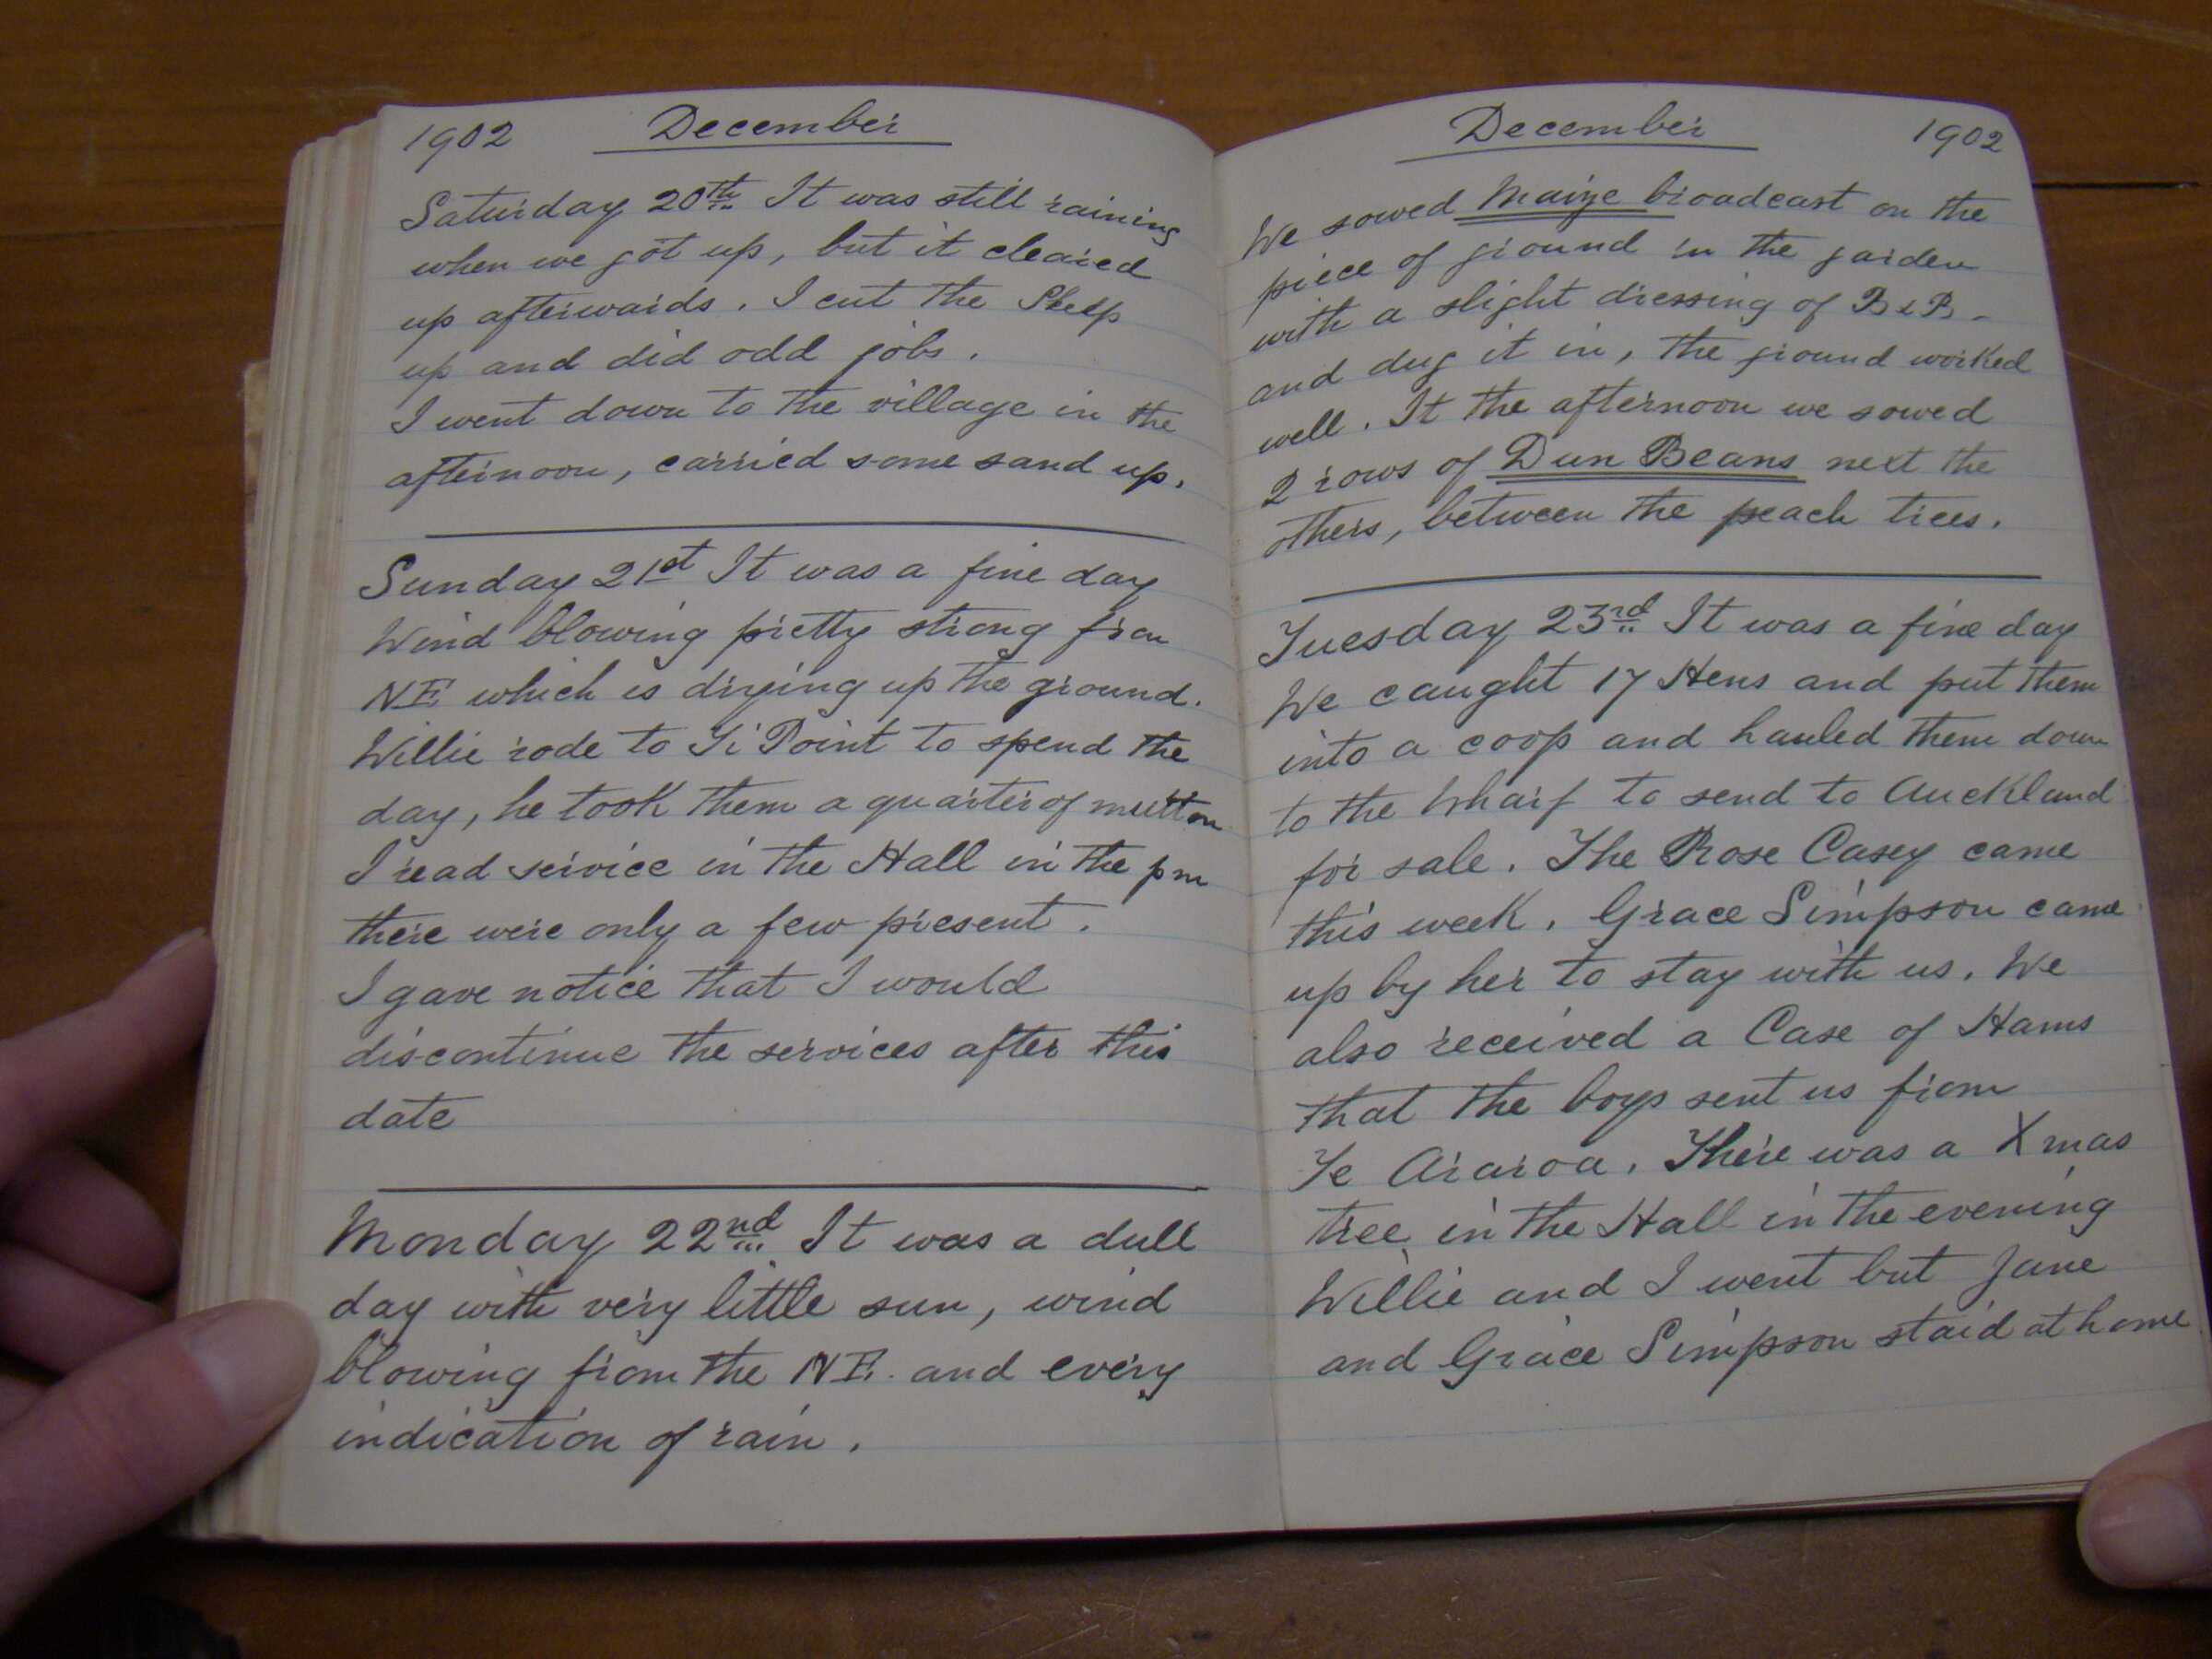 1902 December
Saturday 20th It was still raining
when we got up, but it cleared
up afterwards. I cut the Sheep
up and did odd jobs.
I went down to the village in the
afternoon, carried some sand up.
Sunday 21st It was a fine day
Wind blowing pretty strong from
NE which is drying up the ground.
Willie rode to Ti Point to spend the
day, he took them a quarter of mutton
I read service in the Hall in the pm
there were only a few present.
I gave notice that I would
discontinue the services after this
date
Monday 22nd It was a dull
day with very little sun, wind
blowing from the NE. and every
indication of rain.
December 1902
We sowed Maize broadcast on the
piece of ground in the garden
with a slight dressing of B & B -
and dug it in, the ground worked
well. It the afternoon we sowed
2 rows of Dun Beans next the
others, between the peach trees.
Tuesday 23rd It was a fine day
We caught 17 Hens and put them
into a coop and hauled them down
to the Wharf to send to Auckland
for sale. The Rose Casey came
this week. Grace Simpson came
up by her to stay with us. We
also received a Case of Hams
that the boys sent us from
Te Araroa. There was a Xmas
tree in the Hall in the evening
Willie and I went but Jane
and Grace Simpson staid at home